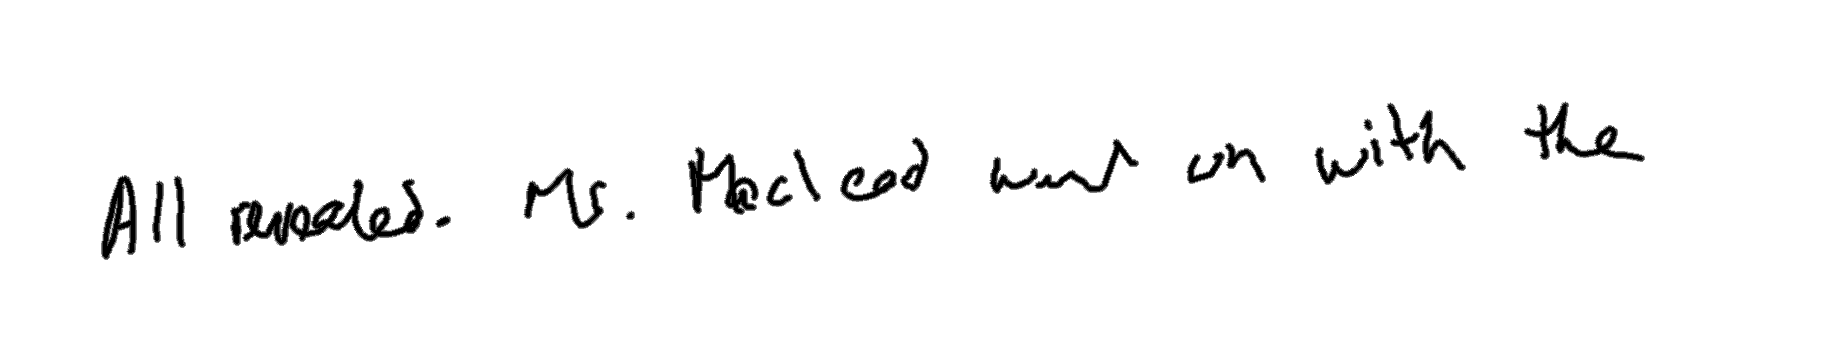 All revealed. Ms. Macleod went on with the